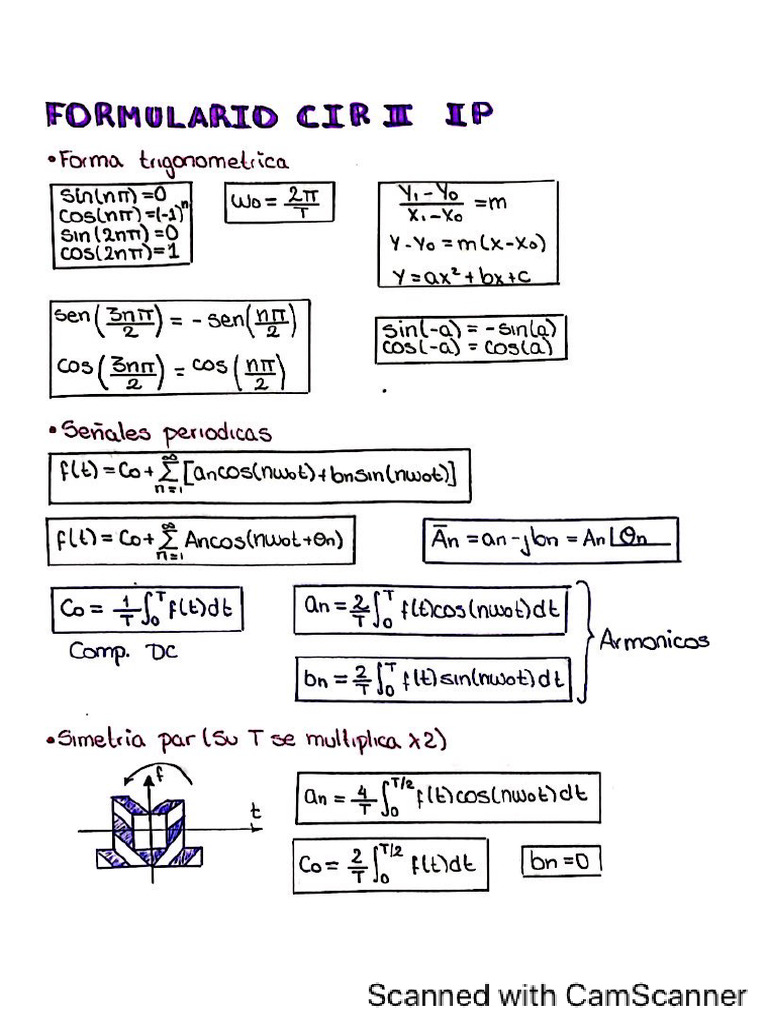 FORMULARIO CIR III IP
•Forma trigonometrica
sin(nπ)=0
cos(nπ)=(-1)ⁿ
sin(2nπ)=0
cos(2nπ)=1
ω₀ = 2π/T
(Y₁-Y₀)/(X₁-X₀) = m
Y-Y₀ = m(X-X₀)
Y = ax² + bx + c
sen(3nπ/2) = - sen(nπ/2)
cos(3nπ/2) = cos(nπ/2)
sin(-a) = -sin(a)
cos(-a) = cos(a)
•Señales periodicas
f(t) = C₀ + ∑ₙ₌₁^∞ [aₙcos(nω₀t) + bₙsin(nω₀t)]
f(t) = C₀ + ∑ₙ₌₁^∞ Aₙcos(nω₀t + θₙ)
Āₙ = aₙ - jbₙ = Aₙ∠θₙ
C₀ = 1/T ∫₀ᵀ f(t)dt
Comp. DC
aₙ = 2/T ∫₀ᵀ f(t)cos(nω₀t)dt
bₙ = 2/T ∫₀ᵀ f(t)sin(nω₀t)dt
Armonicos
•Simetria par (Su T se multiplica x2)
f
t
aₙ = 4/T ∫₀^(T/2) f(t)cos(nω₀t)dt
C₀ = 2/T ∫₀^(T/2) f(t)dt
bₙ = 0
Scanned with CamScanner